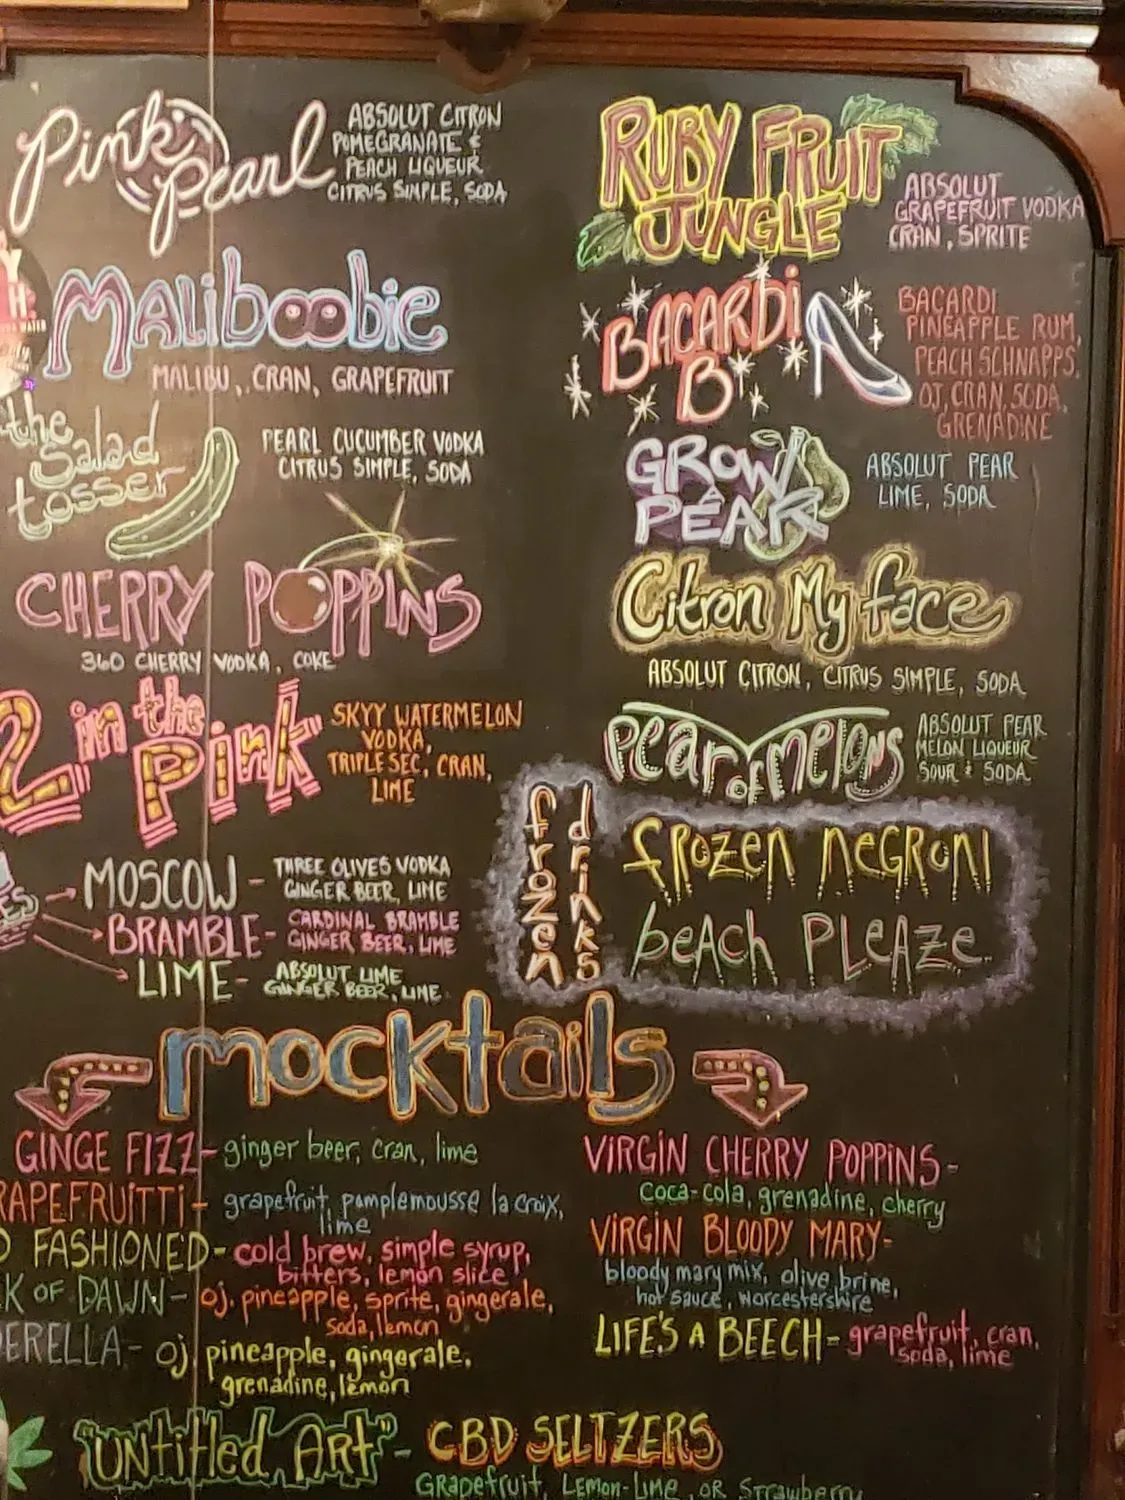 Pink Pearl
ABSOLUT CITRON
POMEGRANATE &
PEACH LIQUEUR
CITRUS SIMPLE, SODA
MALIBOOBIE
MALIBU, CRAN, GRAPEFRUIT
the
Salad
tosser
PEARL CUCUMBER VODKA
CITRUS SIMPLE, SODA
CHERRY POPPINS
360 CHERRY VODKA, COKE
2 in the
Pink
SKYY WATERMELON
VODKA,
TRIPLE SEC, CRAN,
LIME
MOSCOW -
THREE OLIVES VODKA
GINGER BEER, LIME
BRAMBLE -
CARDINAL BRAMBLE
GINGER BEER, LIME
LIME -
ABSOLUT LIME
GINGER BEER, LIME
RUBY FRUIT
JUNGLE
ABSOLUT
GRAPEFRUIT VODKA
CRAN, SPRITE
BACARDI
B
BACARDI
PINEAPPLE RUM,
PEACH SCHNAPPS,
OJ, CRAN, SODA,
GRENADINE
GROW
PEAR
ABSOLUT PEAR
LIME, SODA
Citron My face
ABSOLUT CITRON, CITRUS SIMPLE, SODA
Pear of melons
ABSOLUT PEAR
MELON LIQUEUR
SOUR & SODA
frozen
drinks
fROZEN NEGRONI
beACh PLEAZE
mocktails
GINGE FIZZ - ginger beer, cran, lime
RAPEFRUITTI - grapefruit, pamplemousse la croix,
lime
FASHIONED - cold brew, simple syrup,
bitters, lemon slice
K OF DAWN - oj, pineapple, sprite, gingerale,
soda, lemon
DERELLA - oj pineapple, gingerale,
grenadine, lemon
VIRGIN CHERRY POPPINS -
coca-cola, grenadine, cherry
VIRGIN BLOODY MARY -
bloody mary mix, olive brine,
hot sauce, worcestershire
LIFE'S A BEECH - grapefruit, cran,
soda, lime
"UNtitled ART" - CBD SELTZERS
GRAPEfruit, LEMON-LIME, OR Strawberry